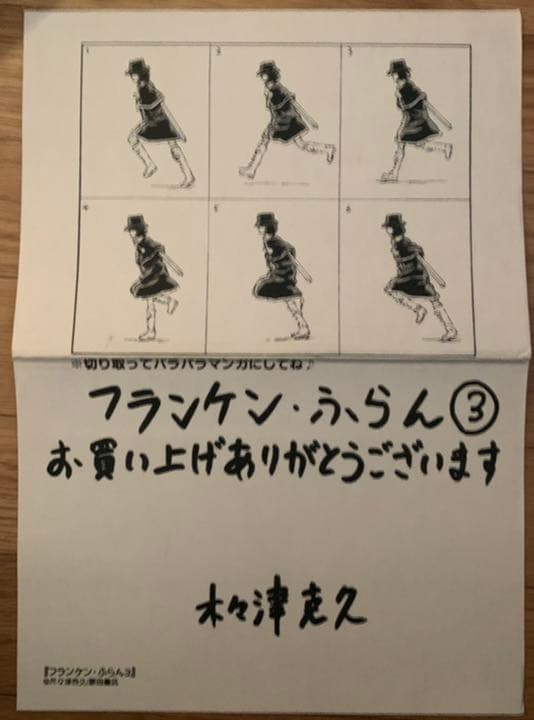 1 2 3
4 5 6
※切り取ってパラパラマンガにしてね♪
フランケン・ふらん③
お買い上げありがとうございます
木々津克久
『フランケン・ふらん3』
©木々津克久/秋田書店